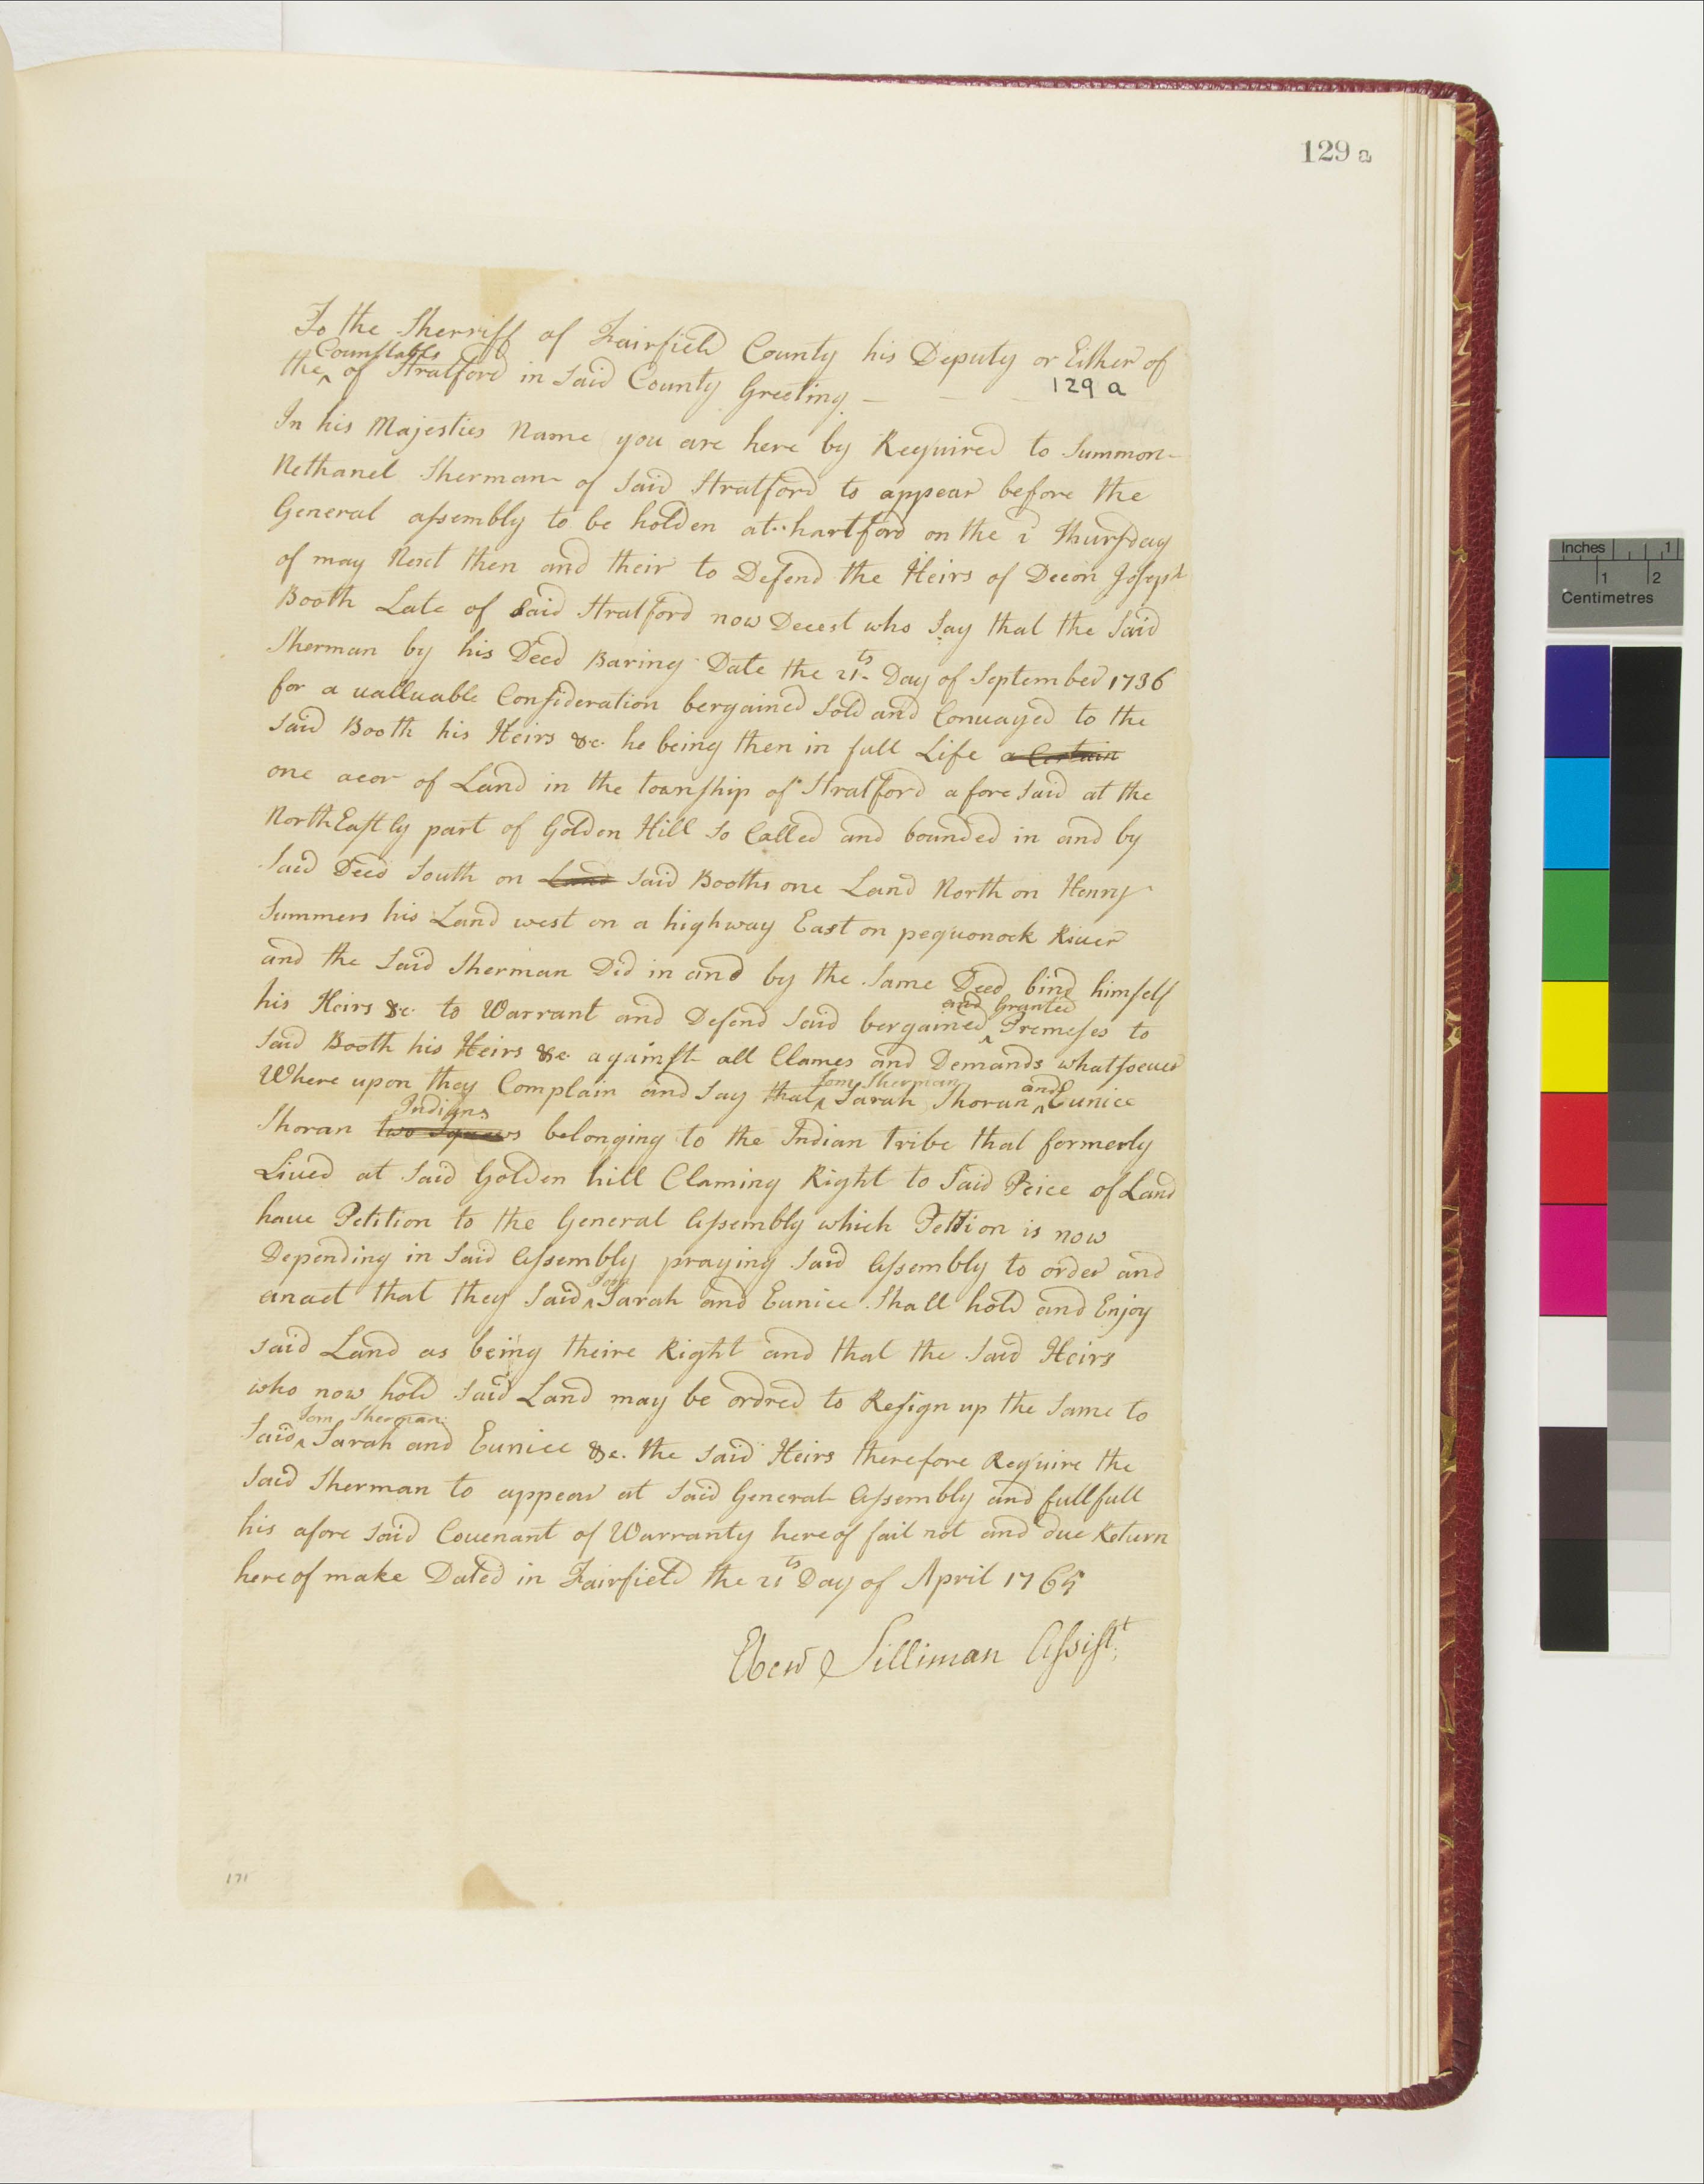 129 a
To the Sherriff of Fairfield County his Deputy or Either of
Counstables
the ‸ of Stratford in said County Greeting —
129 a
In his Majesties Name you are here by Required to Summon
Nethanel Sherman of Said Stratford to appear before the
General assembly to be holden at hartford on the 2d Thursday
of may Next then and their to Defend the Heirs of Decon Joseph
Booth Late of Said Stratford now Decest who Say that the Said
Sherman by his Deed Baring Date the 21ts Day of September 1736
for a valluable Consideration bergained Sold and Convayed to the
said Booth his Heirs &c. he being then in full Life a Certain
one acor of Land in the township of Stratford afore said at the
NorthEastly part of Golden Hill So Called and bounded in and by
Said Deed South on Land said Booths one Land North on Henry
Summers his Land west on a highway East on pequonock River
and the Said Sherman Did in and by the Same Deed bind himself
and Granted
his Heirs &c. to Warrant and Defend Said bergained ‸ Premeses to
Said Booth his Heirs &c. against all Clames and Demands whatsoever
Tom Sherman and
Where upon they Complain and Say that ‸ Sarah Shoran ‸ Eunice
Indians
Shoran two Squaws belonging to the Indian tribe that formerly
Lived at Said Golden hill Claming Right to Said Peice of Land
have Petition to the General Assembly which Petition is now
Depending in Said Assembly praying Said Assembly to order and
Tom
anact that they Said ‸ Sarah and Eunice Shall hold and Enjoy
said Land as being theire Right and that the Said Heirs
who now hold Said Land may be ordred to Resign up the Same to
Tom Sherman
Said ‸ Sarah and Eunice &c. the said Heirs therefore Require the
Said Sherman to appear at Said General Assembly and fullfull
his afore Said Covenant of Warranty hereof fail not and due Return
hereof make Dated in Fairfield the 21ts Day of April 1765
Ebenr Silliman Assistt.
171
Inches 1
1 2
Centimetres